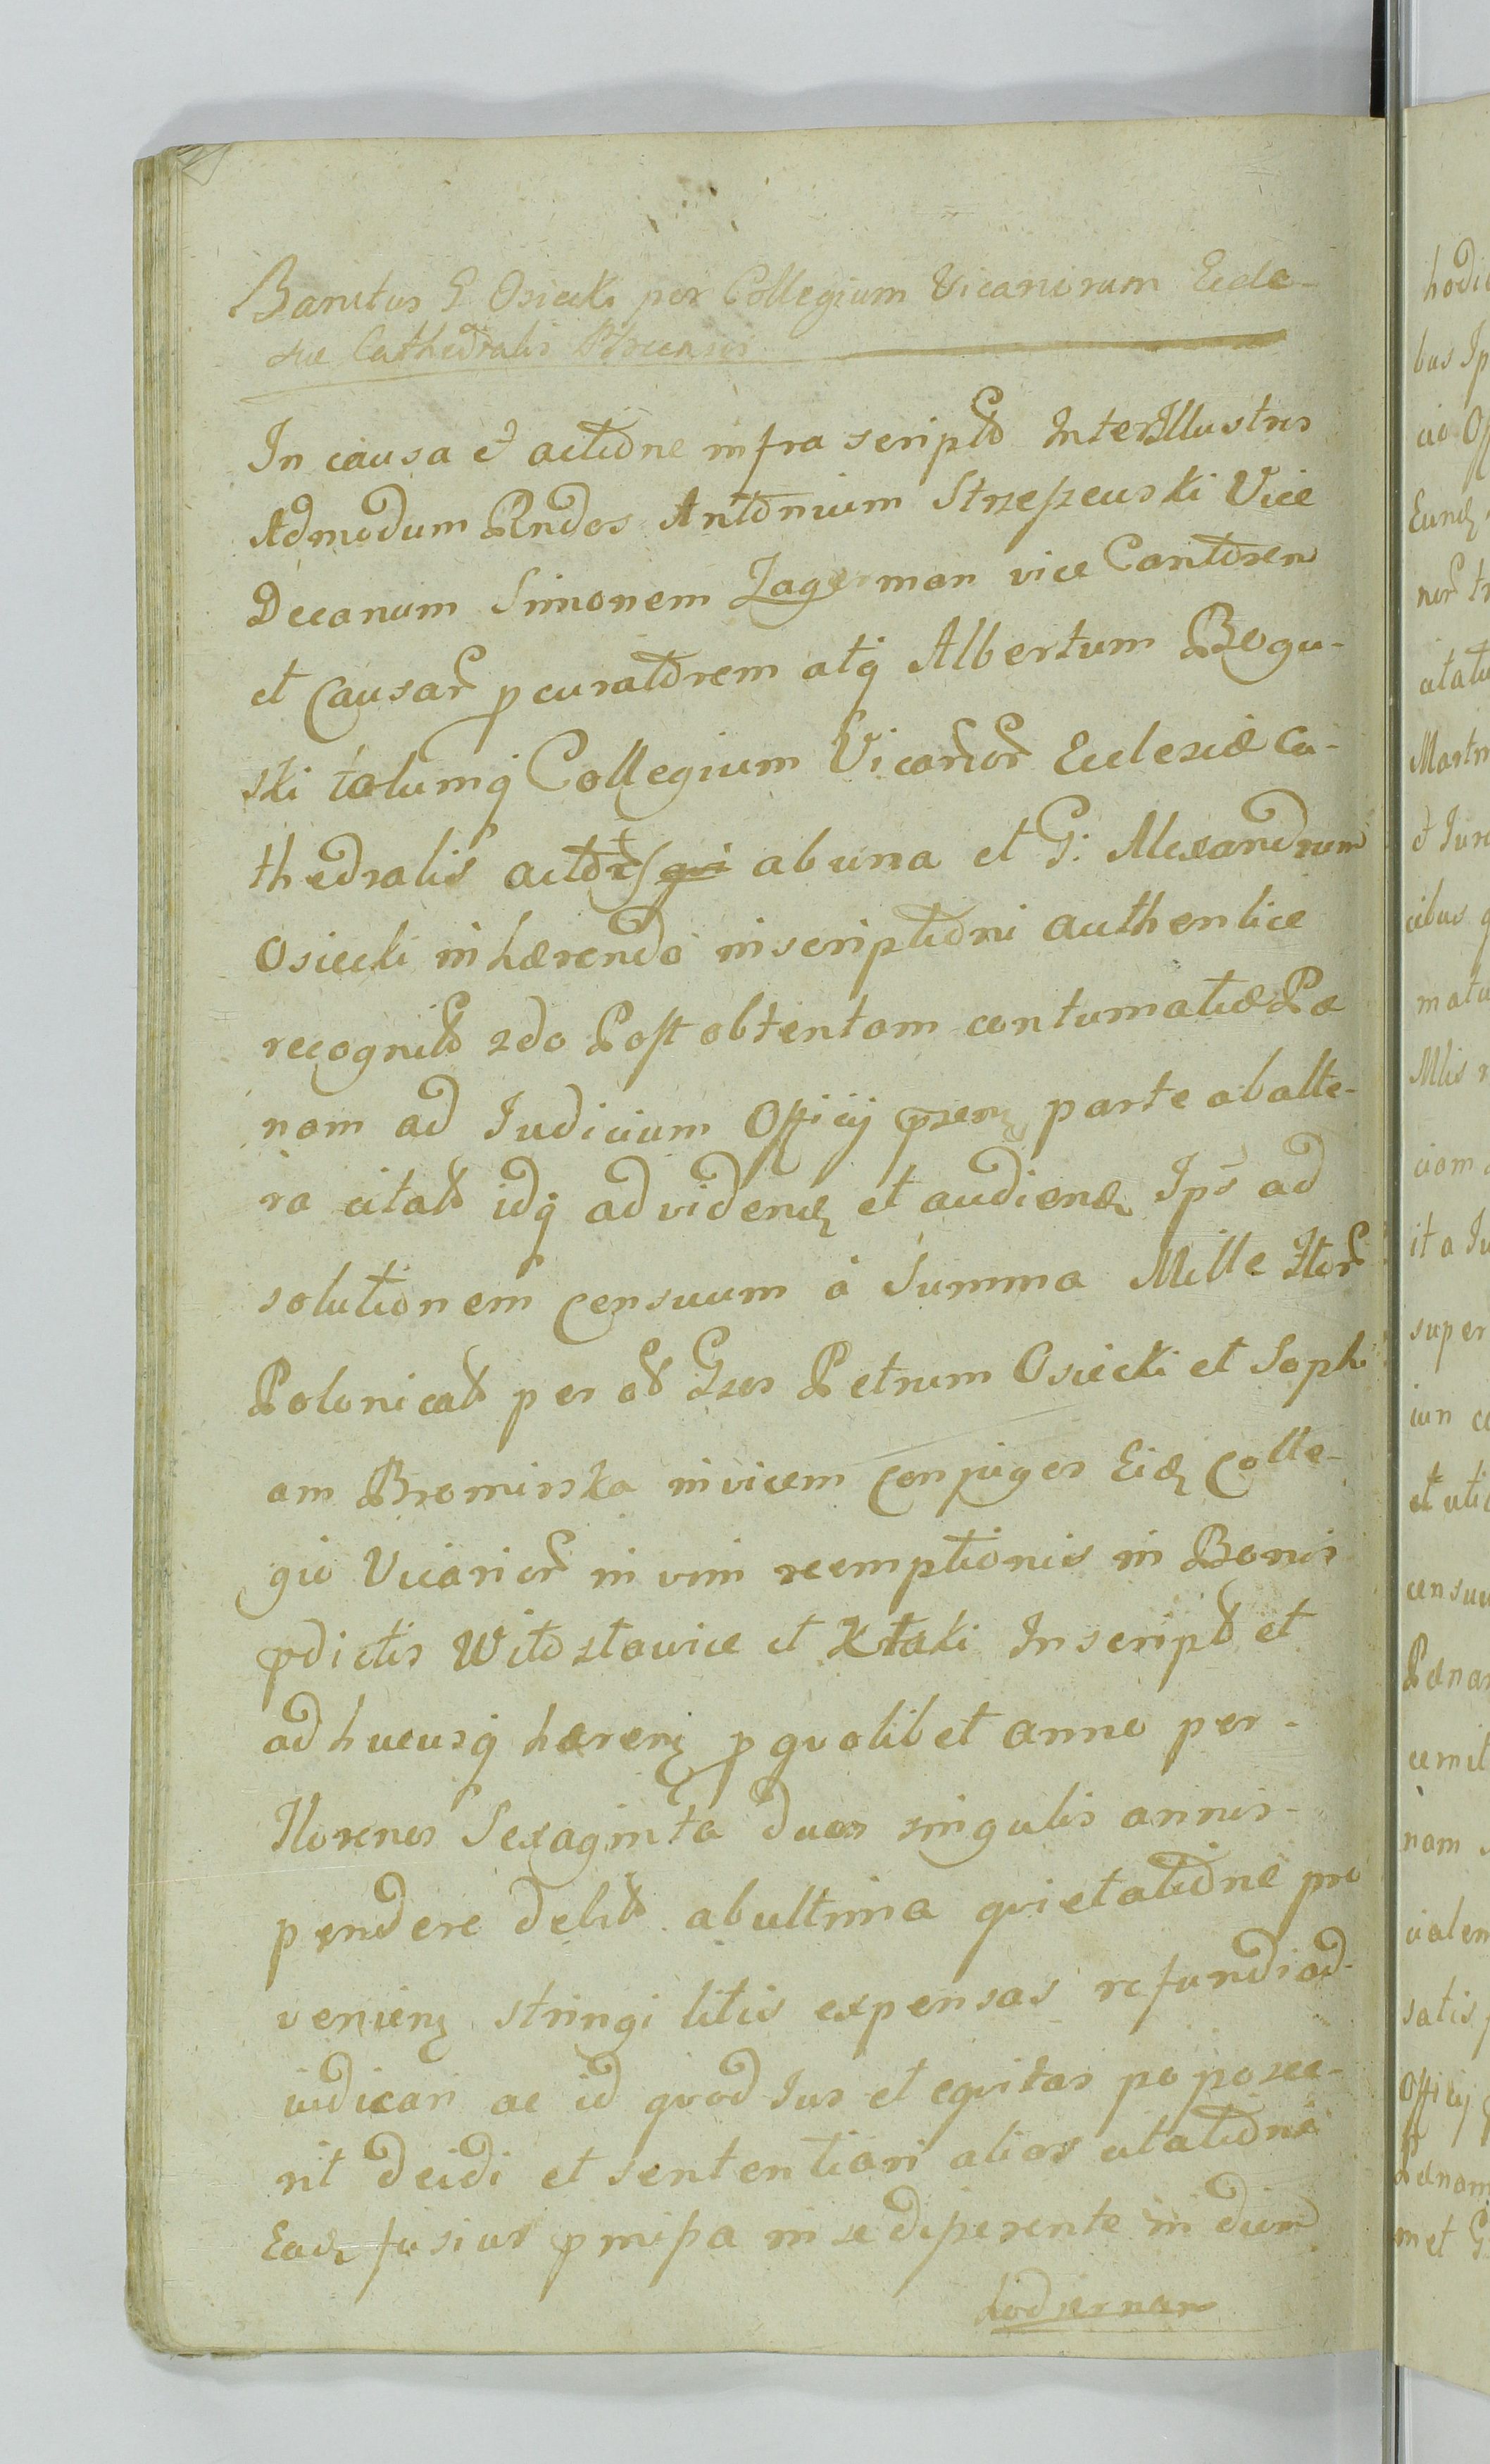 Banitus G Osiecki per Collegium Vicariorum Eccle-
siæ Cathedralis
In causa et actione infra script Inter Illustres
Admodum Rndos Antonium Strzeszewski Vice
Decanum Simonem Jagerman vice Cantorem
et Causar pcuratorem atq Albertum Bogu-
ski totumq Collegium Vicarior Ecclesiæ Ca-
thedralis actor qui ab una et G: Alexandrum
Osiecki inhærendo inscriptioni authentice
recognit 2do Post obtentam contumatiæ Pæ
nam ad Iudicium Officij parte ab alte-
ra citat idq ad videnq et audienq Ips ad
solutionem Censuum à Summa Mille flor
Polonical per od Gsos Petrum Osiecki et Sophi
am Bromirska invicem Conjuges Eidq Colle-
gio Vicarior in vim reemptionis in Bonis
pdictis Witoslawice et Kłaki Inscript et
adhucusq hærenq p quolibet anno per-
florenos Sexaginta duos singulis annis-
pendere debit ab ultima quietatione pro
venienq stringi litis expensas refundi ad-
iudicari ac id quod Ius et equitas poposce-
rit decidi et sententiari alias citatione
Eadq fusius pmissa in se disserente in diem
hodiernam
hodie
bus Ip
cio Off
Eundq
nor tr
citatio
Martin
et Iur
cibus q
matu
Mlis
ciam
ita Iu
super
iun c
et uti
censuu
Pænam
cemit
nam
cialem
satis
Officij
Pænam
met G